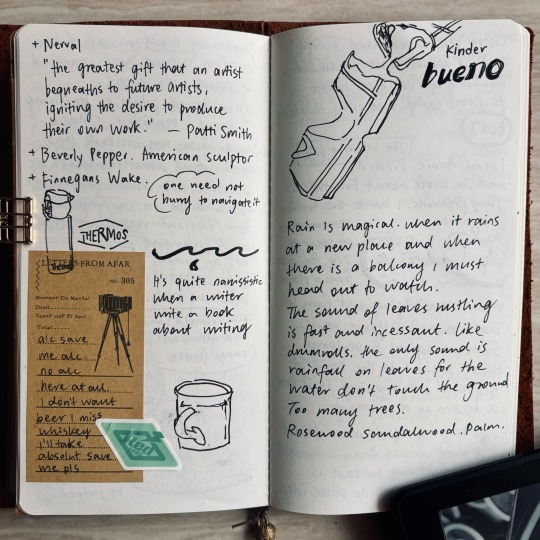 + Nerval
"the greatest gift that an artist
beqneaths to future artists,
igniting the desire to produce
their own work." — Patti Smith
+ Beverly Pepper. American sculptor
+ Finnegans Wake.
one need not
hurry to navigate it
THERMOS
LETTERS FROM AFAR
NO. 305
Total
alc save
me alc
no alc
here at all.
I don't want
beer I miss
whiskey
i'll take
absolut save
me pls
It's quite narcissistic
when a writer
write a book
about writing
Kinder
bueno
Rain is magical. when it rains
at a new place and when
there is a balcony i must
head out to watch.
The sound of leaves rustling
is fast and incessant. Like
drumrolls. the only sound is
rainfall on leaves for the
water don't touch the ground
Too many trees.
Rosewood sandalwood. palm.